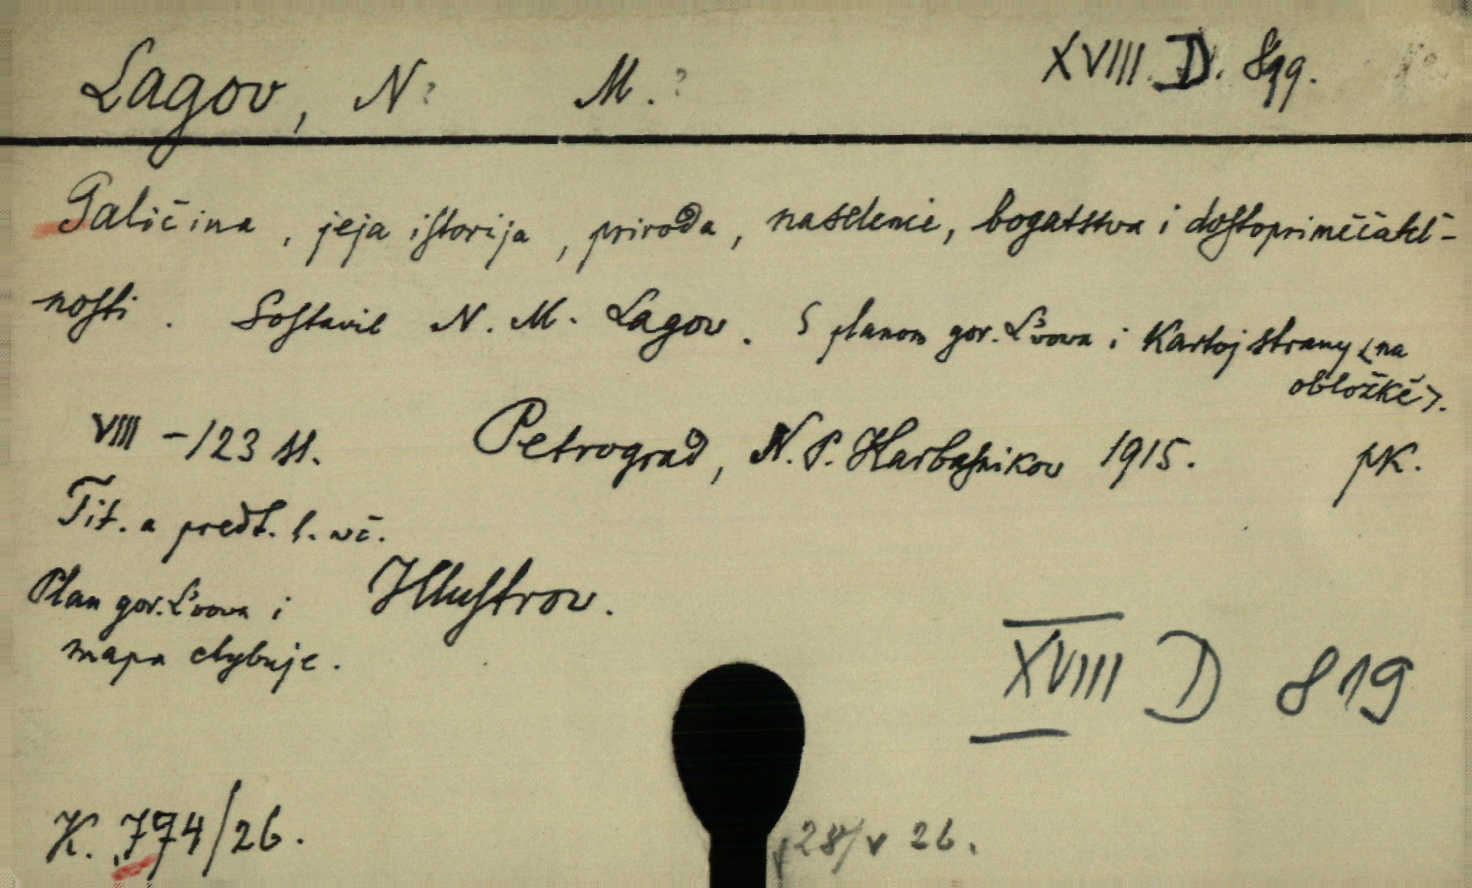 Lagov, N? M.? XVIII. D. 819.
Galičina, jeja istorija, priroda, naselenie, bogatstva i dostopriměčatel-
nosti. Sostavil N. M. Lagov. S planom gor. L'vova i kartoj strany <na
obložkě>.
VIII - 123 st. Petrograd, N. P. Karbasnikov 1915. pk.
Tit. a předt. l. vč.
Plan gor. L'vova i Illustrov.
mapa chybuje.
XVIII D 819
K. 774/26.
28/V 26.